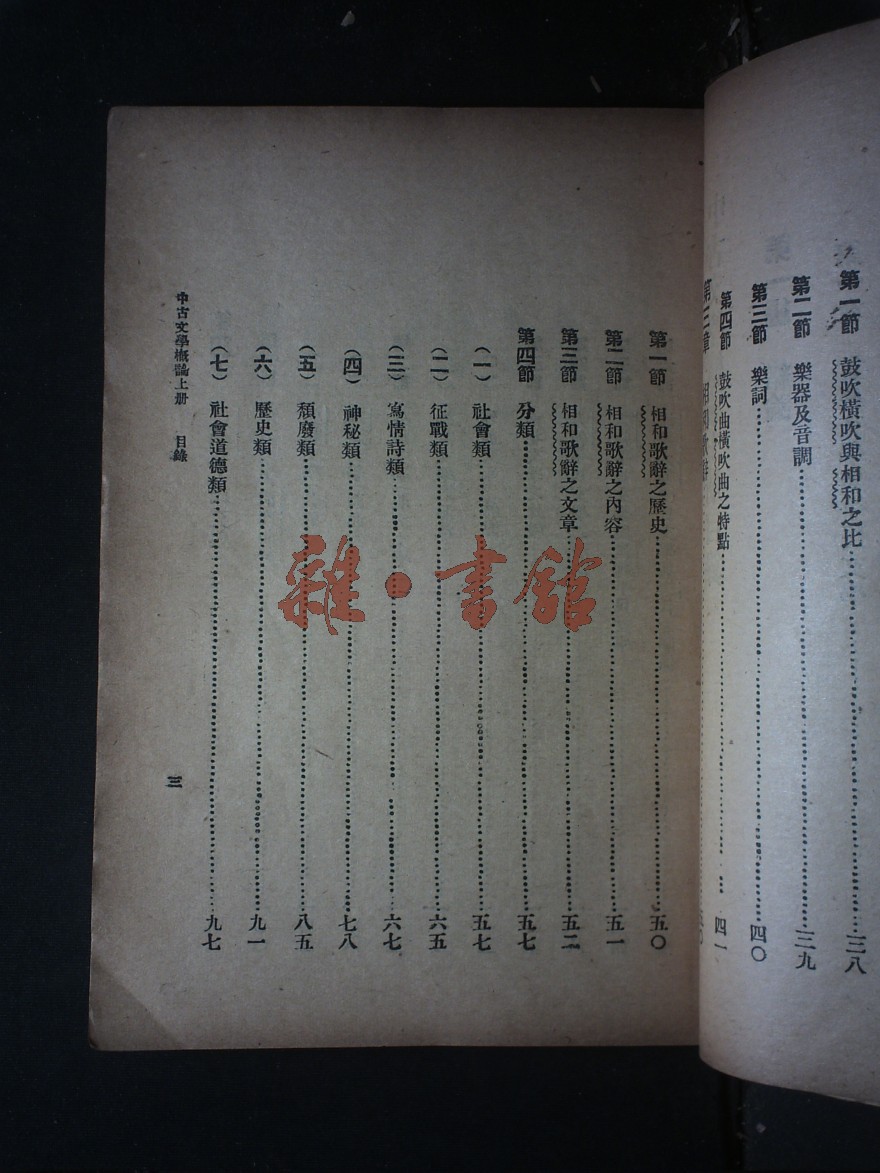 第一節　鼓吹橫吹與相和之比……三八
第二節　樂器及音調……三九
第三節　樂詞……四〇
第四節　鼓吹曲橫吹曲之特點……四一
第三章　相和歌辭……五〇
第一節　相和歌辭之歷史……五〇
第二節　相和歌辭之內容……五一
第三節　相和歌辭之文章……五二
第四節　分類……五七
（一）　社會類……五七
（二）　征戰類……六五
（三）　寫情詩類……六七
（四）　神秘類……七八
（五）　頹廢類……八五
（六）　歷史類……九一
（七）　社會道德類……九七
中古文學概論上册　目錄
三
雜·書館